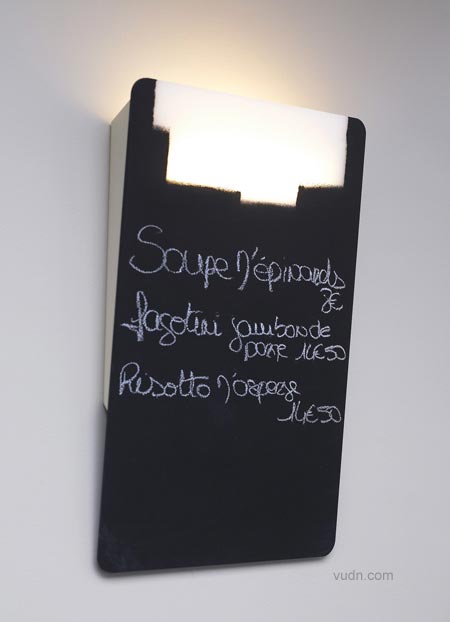 Soupe d'épinards
7€
fagotini jambon de
parme 14€50
Risotto d'asperge
14€50
vudn.com